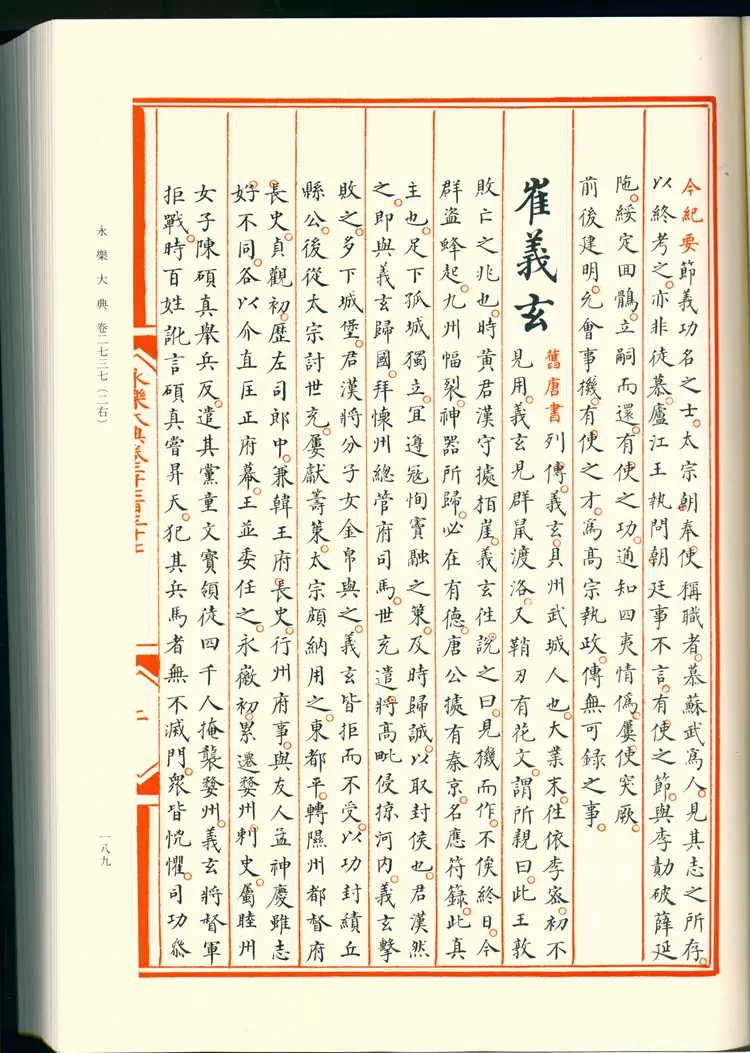 今紀要節義功名之士。太宗朝奉使稱職者。慕蘇武爲人。見其志之所存。
以終考之。亦非徒慕。廬江王執問朝廷事不言。有使之節。與李勣破薛延
陁。綏定回鶻。立嗣而還。有使之功。通知四夷情僞。屢使突厥。
前後建明。允會事機。有使之才。爲高宗執政。傳無可録之事。
崔義玄
舊唐書列傳。義玄。貝州武城人也。大業末。往依李密。初不
見用。義玄見群鼠渡洛。又鞘刃有花文。謂所親曰。此王敦
敗亡之兆也。時黄君漢守據栢崖。義玄徃說之曰。見機而作。不俟終日。今
群盗蜂起。九州幅裂。神器所歸。必在有德。唐公據有秦京。名應符籙。此真
主也。足下孤城獨立。宜遵寇恂竇融之策。及時歸誠。以取封侯也。君漢然
之。即與義玄歸國。拜懷州總管府司馬。世充遣將高毗侵掠河内。義玄擊
敗之。多下城堡。君漢將分子女金帛與之。義玄皆拒而不受。以功封績丘
縣公。後從太宗討世充。屢獻籌策。太宗頗納用之。東都平。轉隰州都督府
長史。貞觀初。歷左司郎中。兼韓王府長史。行州府事。與友人孟神慶雖志
好不同。各以介直匡正府幕。王並委任之。永徽初。累遷婺州刺史。屬睦州
女子陳碩真舉兵反。遣其黨童文寳領徒四千人掩襲婺州。義玄將督軍
拒戰。時百姓訛言碩真嘗昇天。犯其兵馬者無不滅門。衆皆恱懼。司功叅
永樂大典卷二千七百三十七
十一
永樂大典 卷二七三七（二右）
一八九